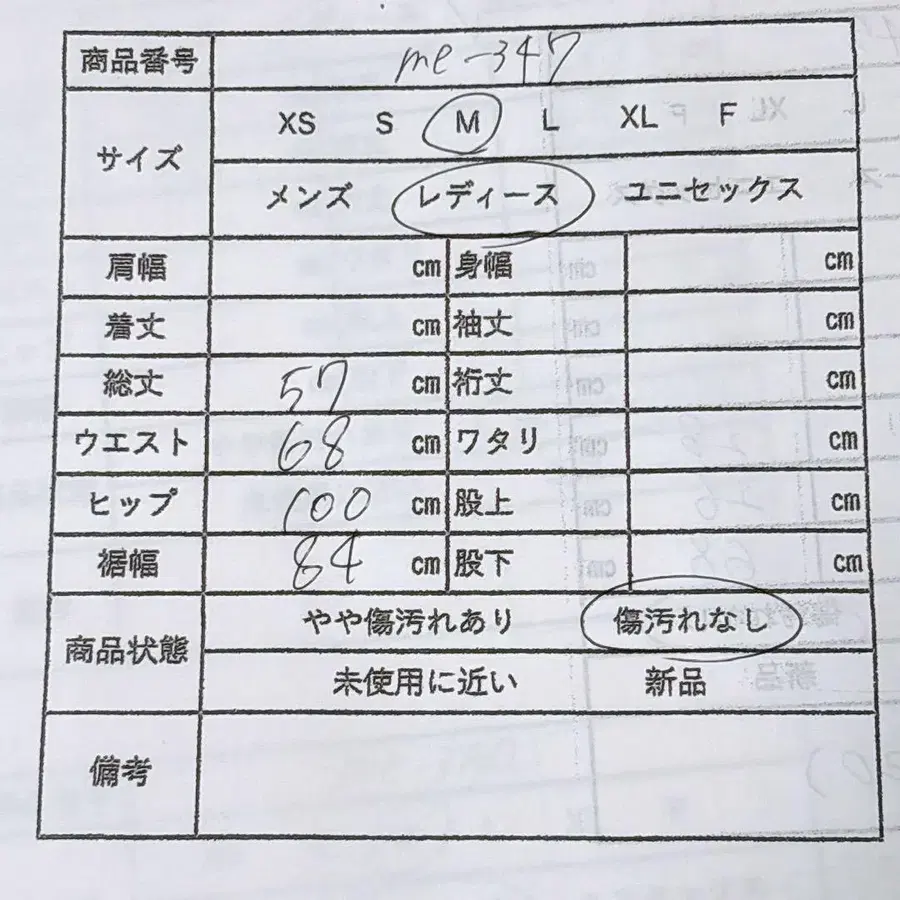 商品番号 me-347
サイズ XS S M L XL F
メンズ レディース ユニセックス
肩幅 cm 身幅 cm
着丈 cm 袖丈 cm
総丈 57 cm 裄丈 cm
ウエスト 68 cm ワタリ cm
ヒップ 100 cm 股上 cm
裾幅 84 cm 股下 cm
商品状態 やや傷汚れあり 傷汚れなし
未使用に近い 新品
備考